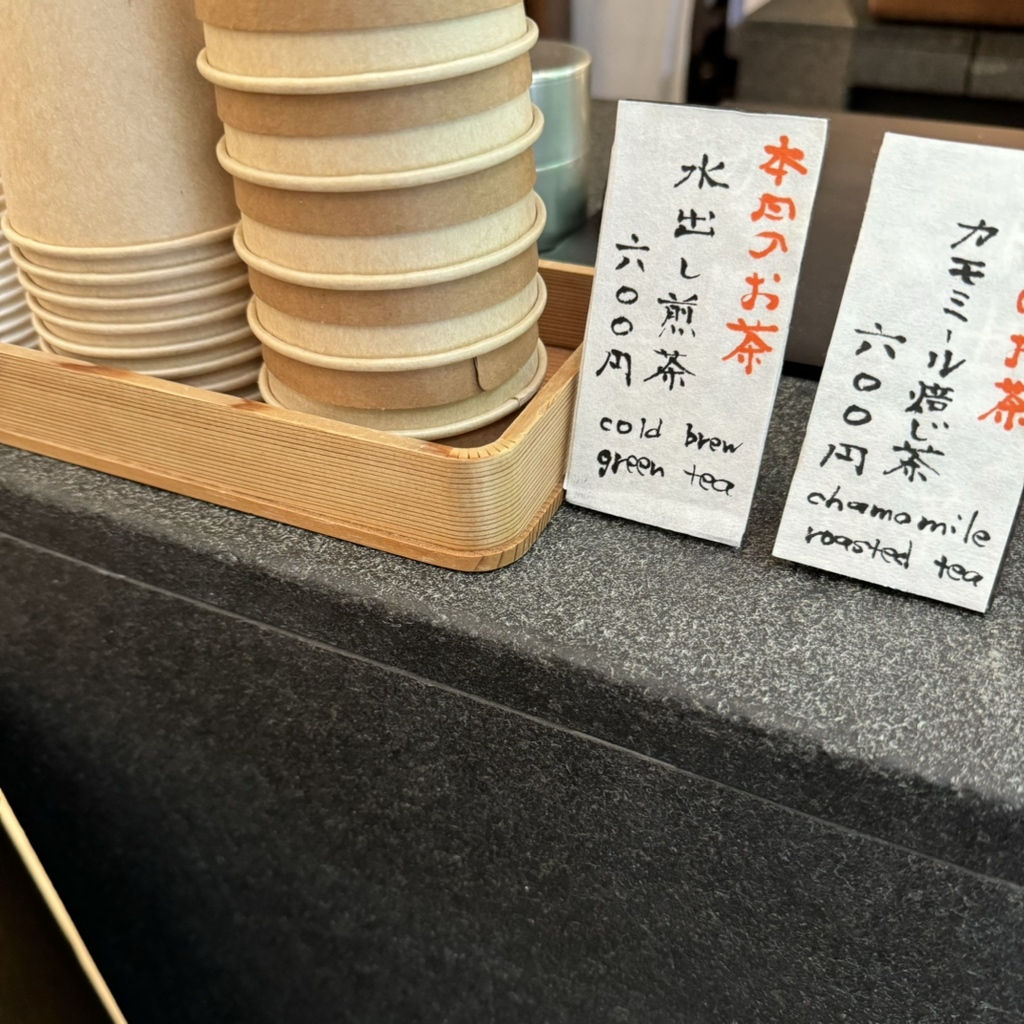 本日のお茶
水出し煎茶
六〇〇円
cold brew
green tea
お茶
カモミール焙じ茶
六〇〇円
chamomile
roasted tea